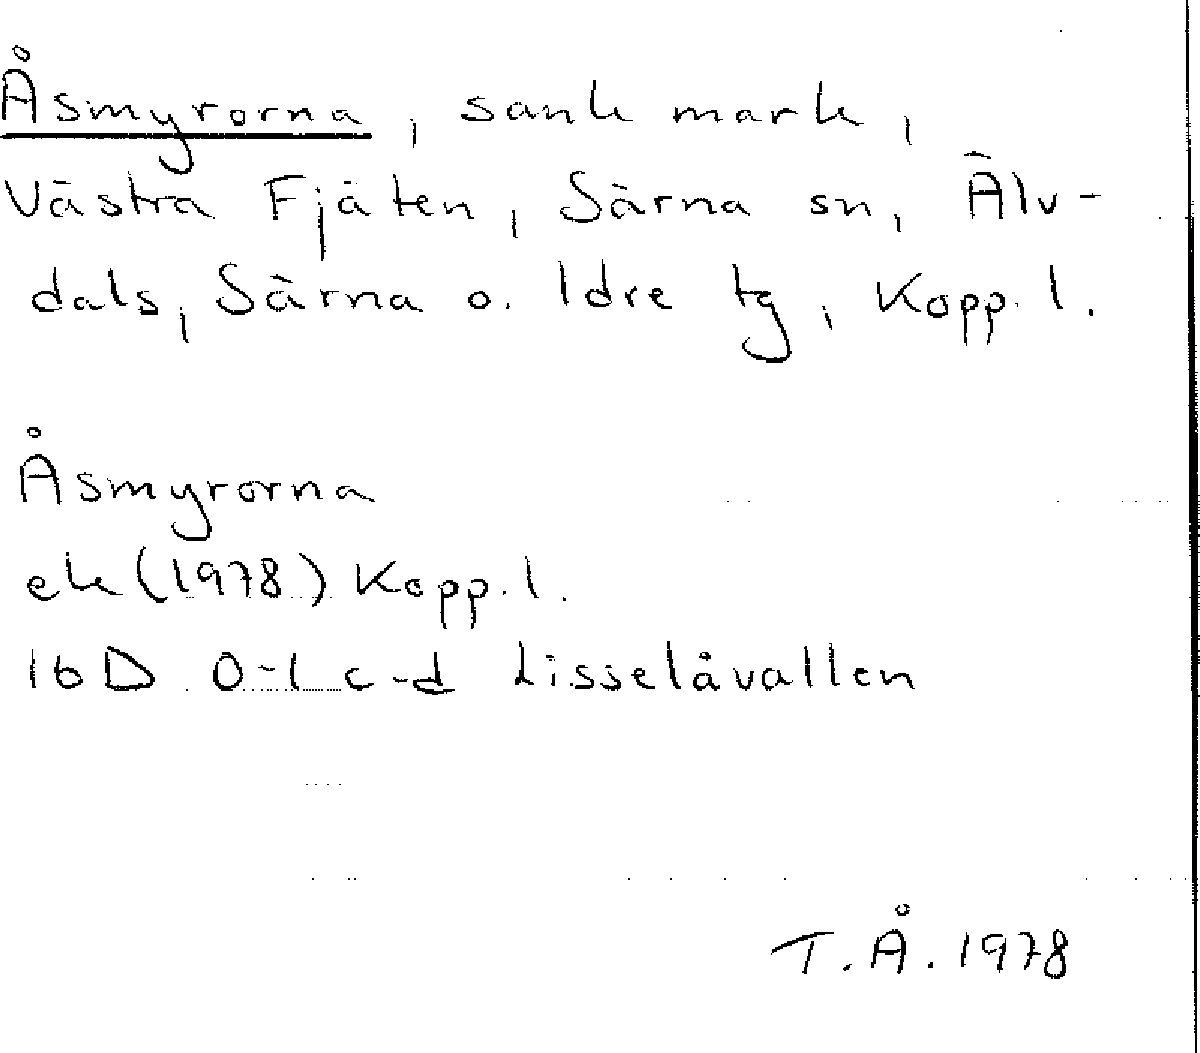 Åsmyrorna, sank mark,
Västra Fjäten, Särna sn, Älv-
dals, Särna o. Idre tg, Kopp. l.
Åsmyrorna
ek (1978) Kopp. l.
16D 0-1 c-d Lisselåvallen
T.Å. 1978